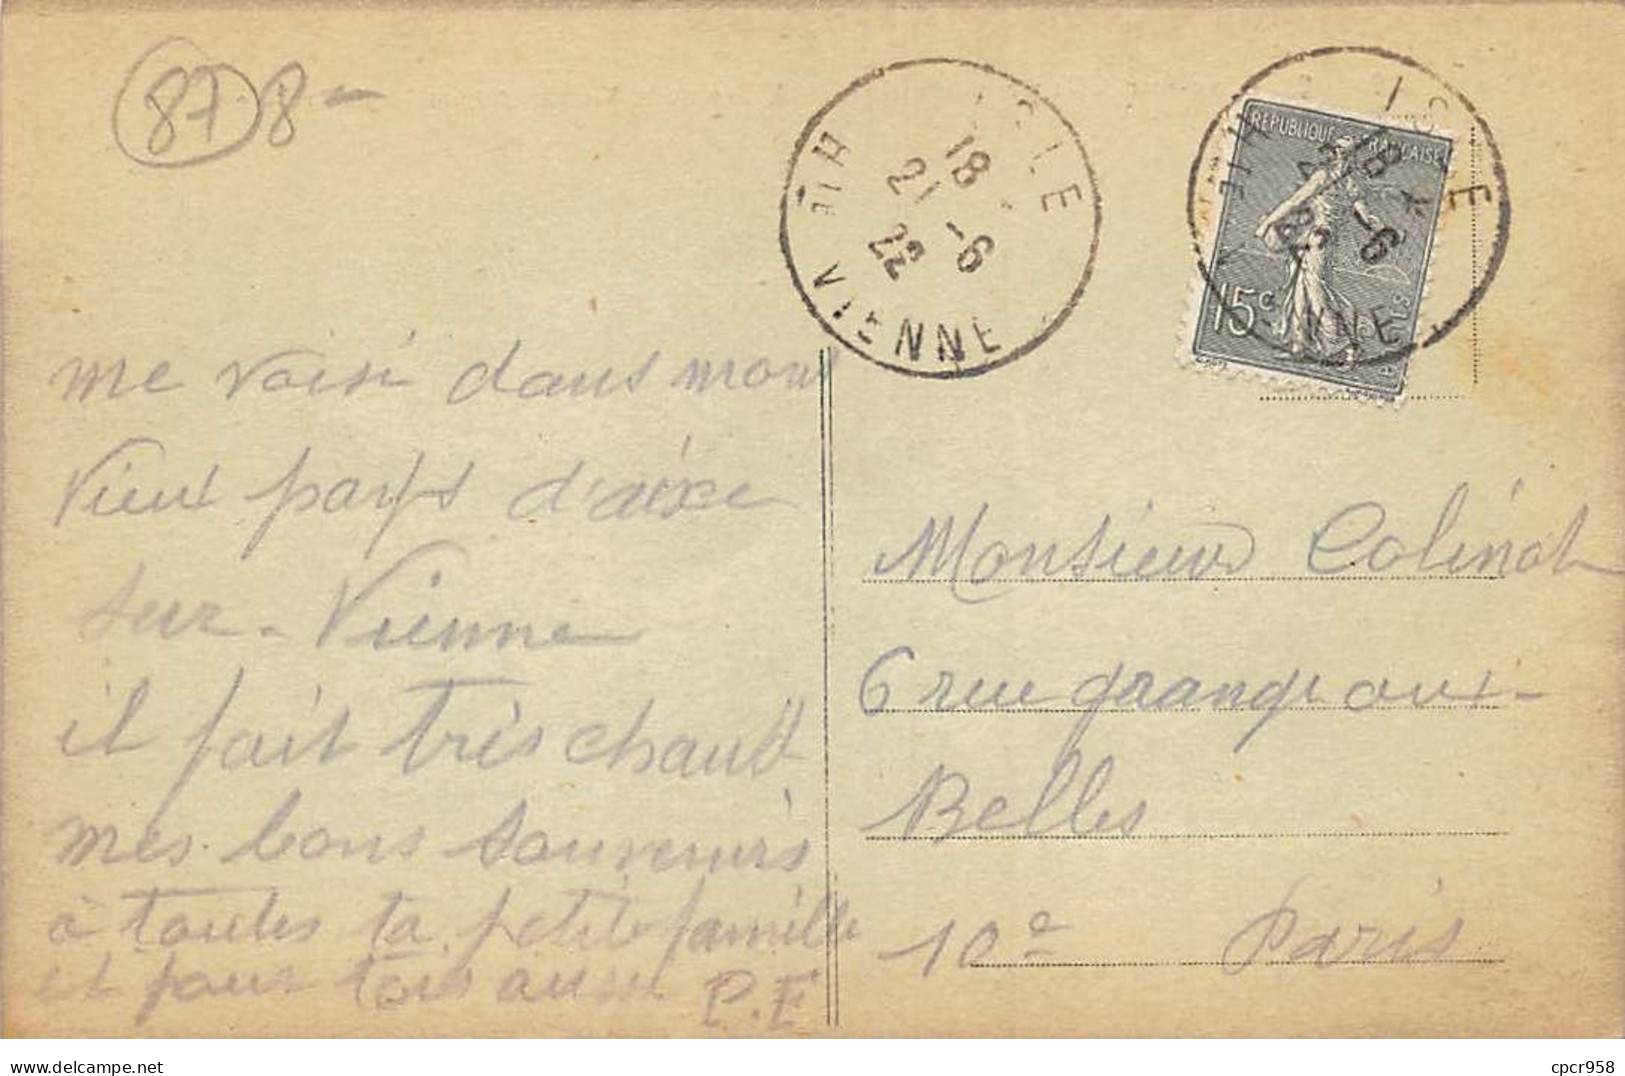 87 8-
ISLE
18
21 -6
22
HTE VIENNE
ISLE
18
21 -6
22
HTE VIENNE
REPUBLIQUE FRANÇAISE
15c
POSTES
me voisi dans mon
vieux pays d'aixe
sur-Vienne
il fait très chaud
mes bons souvenirs
à toutes ta petite famille
et pour tois aussi P.F
Monsieur Colinot
6 rue grange aux-
Belles
10e Paris
delcampe.net
cpcr958